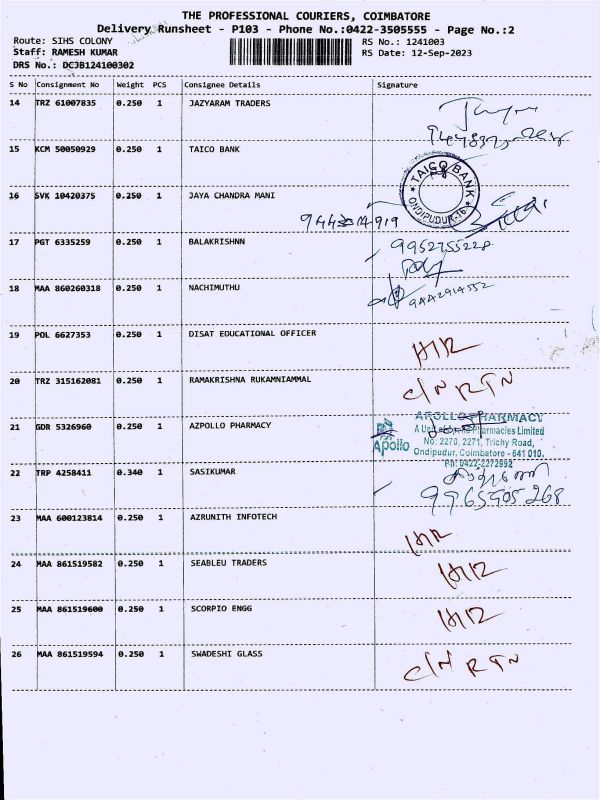 THE PROFESSIONAL COURIERS, COIMBATORE
Delivery Runsheet - P103 - Phone No.:0422-3505555 - Page No.:2
Route: SIHS COLONY
RS No.: 1241003
Staff: RAMESH KUMAR
RS Date: 12-Sep-2023
DRS No.: DCJB124100302
S No Consignment No Weight PCS Consignee Details Signature
14 TRZ 61007835 0.250 1 JAZYARAM TRADERS
15 KCM 50050929 0.250 1 TAICO BANK
TAICO BANK
ONDIPUDUR-16
16 SVK 10420375 0.250 1 JAYA CHANDRA MANI
17 PGT 6335259 0.250 1 BALAKRISHNN 9952755228
18 MAA 860260318 0.250 1 NACHIMUTHU 9442914552
19 POL 6627353 0.250 1 DISAT EDUCATIONAL OFFICER
20 TRZ 315162081 0.250 1 RAMAKRISHNA RUKAMNIAMMAL C/N RTN
21 GDR 5326960 0.250 1 AZPOLLO PHARMACY
APOLLO PHARMACY
Pharmacies Limited
Apollo
No. 2270, 2271, Trichy Road,
Ondipudur, Coimbatore - 641 010.
Ph: 0422-2272992
22 TRP 4258411 0.340 1 SASIKUMAR
9965905268
23 MAA 600123814 0.250 1 AZRUNITH INFOTECH
24 MAA 861519582 0.250 1 SEABLEU TRADERS
25 MAA 861519600 0.250 1 SCORPIO ENGG
26 MAA 861519594 0.250 1 SWADESHI GLASS C/N RTN